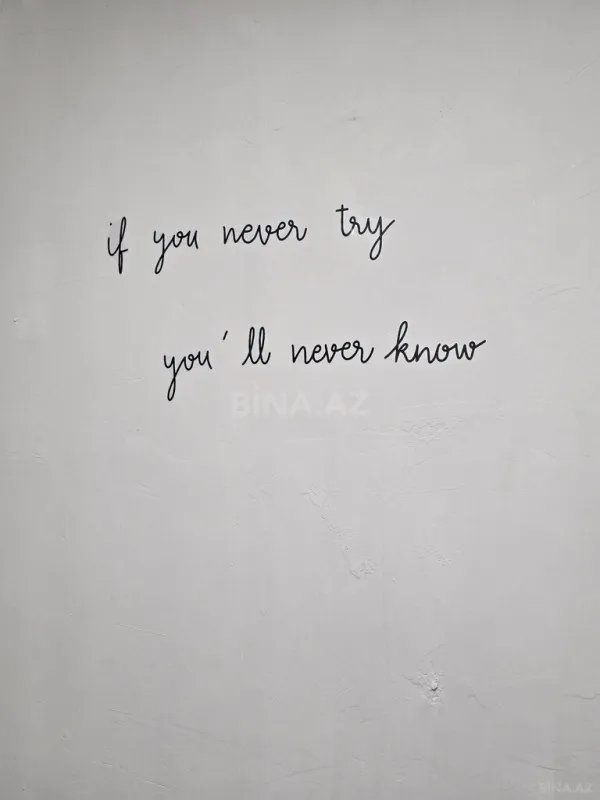 if you never try
you'll never know
BİNA.AZ
BİNA.AZ